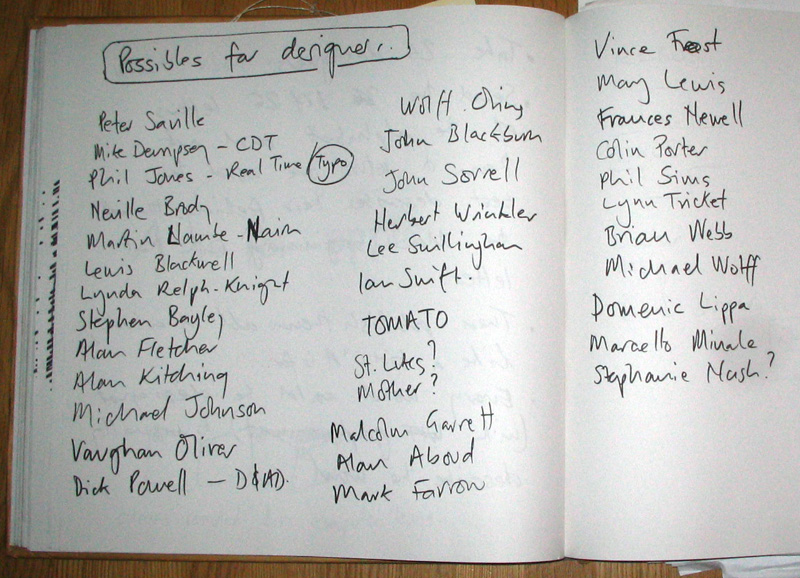 Possibles for designer...
Peter Saville
Mike Dempsey - CDT
Phil Jones - Real Time / Typo
Neville Brody
Martin Lambie-Nairn
Lewis Blackwell
Lynda Relph-Knight
Stephen Bayley
Alan Fletcher
Alan Kitching
Michael Johnson
Vaughan Oliver
Dick Powell - D&AD.
Wolff. Olins
John Blackburn
John Sorrell
Herbert Winkler
Lee Swillingham
Ian Swift.
TOMATO
St. Lukes?
Mother?
Malcolm Garrett
Alan Aboud
Mark Farrow
Vince Frost
Mary Lewis
Frances Newell
Colin Porter
Phil Sims
Lynn Tricket
Brian Webb
Michael Wolff
Domenic Lippa
Marcello Minale
Stephanie Nash?